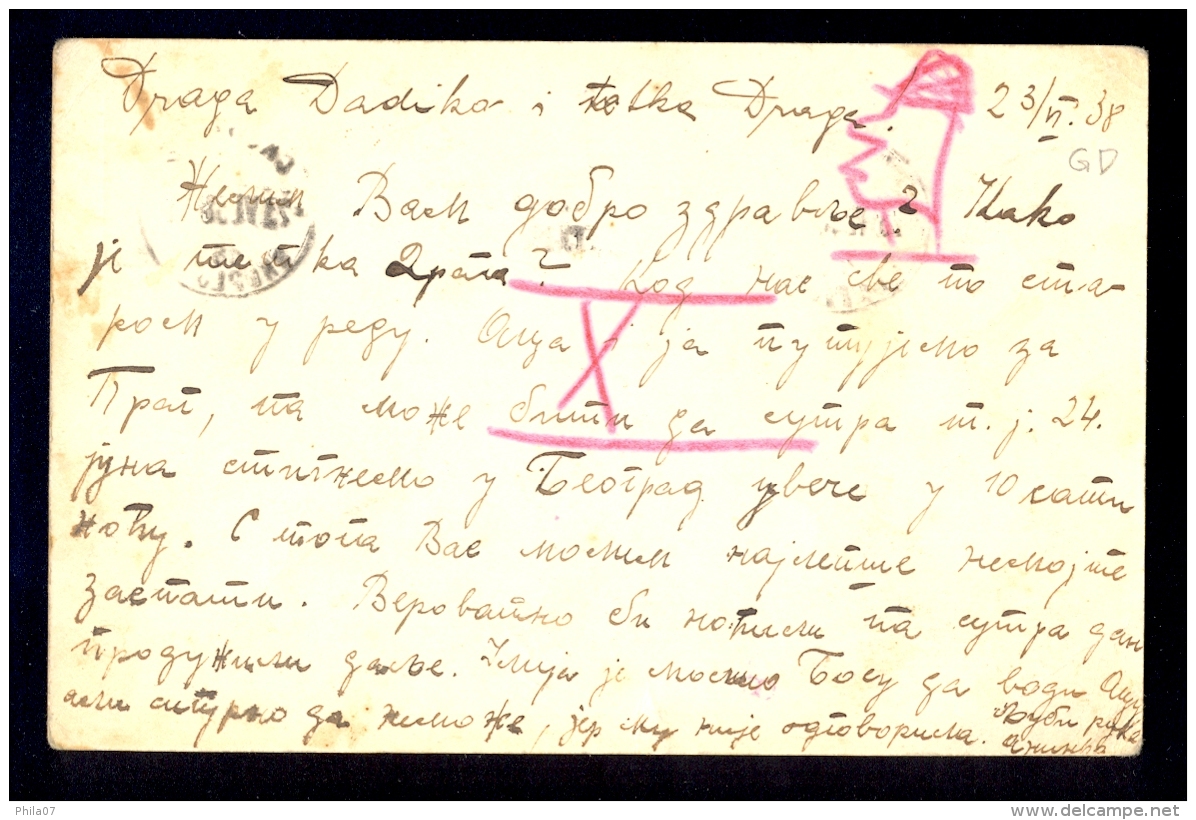 Draga Dadika i totka Draga! 23/VI.38
GD
Желим Вам добро здравље? Како
је тетка Драга? Код нас све по ста-
ром у реду. Аца и ја путујемо за
Праг, па може бити да сутра т.ј. 24.
јуна стигнемо у Београд увече у 10 сати
ноћу. С тога Вас молим најлепше немојте
заспати. Вероватно би ноћили па сутра дан
продужили даље. је молио Босу да води Ацу
али сигурно да неможе, јер му није одговорила. Љуби
Phila07
www.delcampe.net